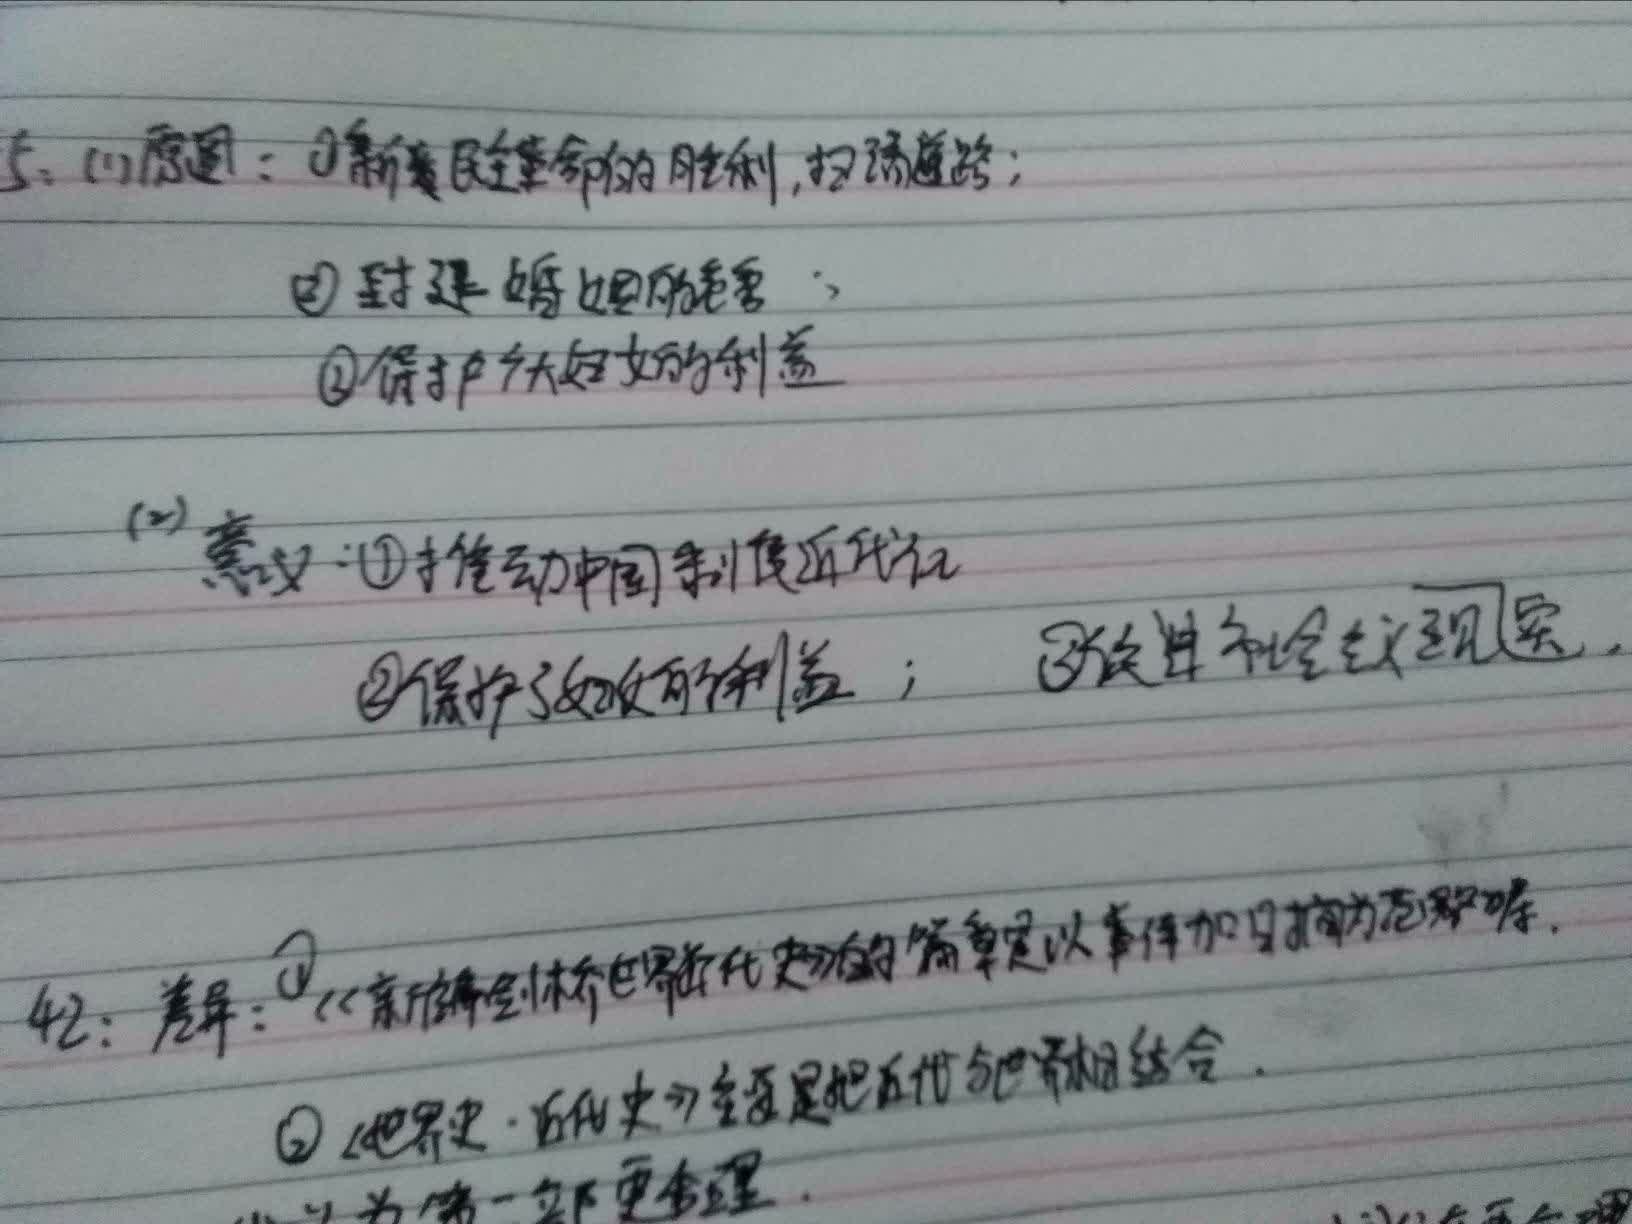 5: (1)原因: ①新民主革命的胜利,扫清道路;
②封建婚姻的危害;
③保护广大妇女的利益
(2)意义:①推动中国制度近代化
②保护了妇女的利益; ③促进社会主义现实.
42: 差异: ①《新编剑桥世界近代史》的篇章是以事件加时间为范畴.
②《世界史·近代史》主要是把近代与世界相结合.
认为第一部更合理.
更合理